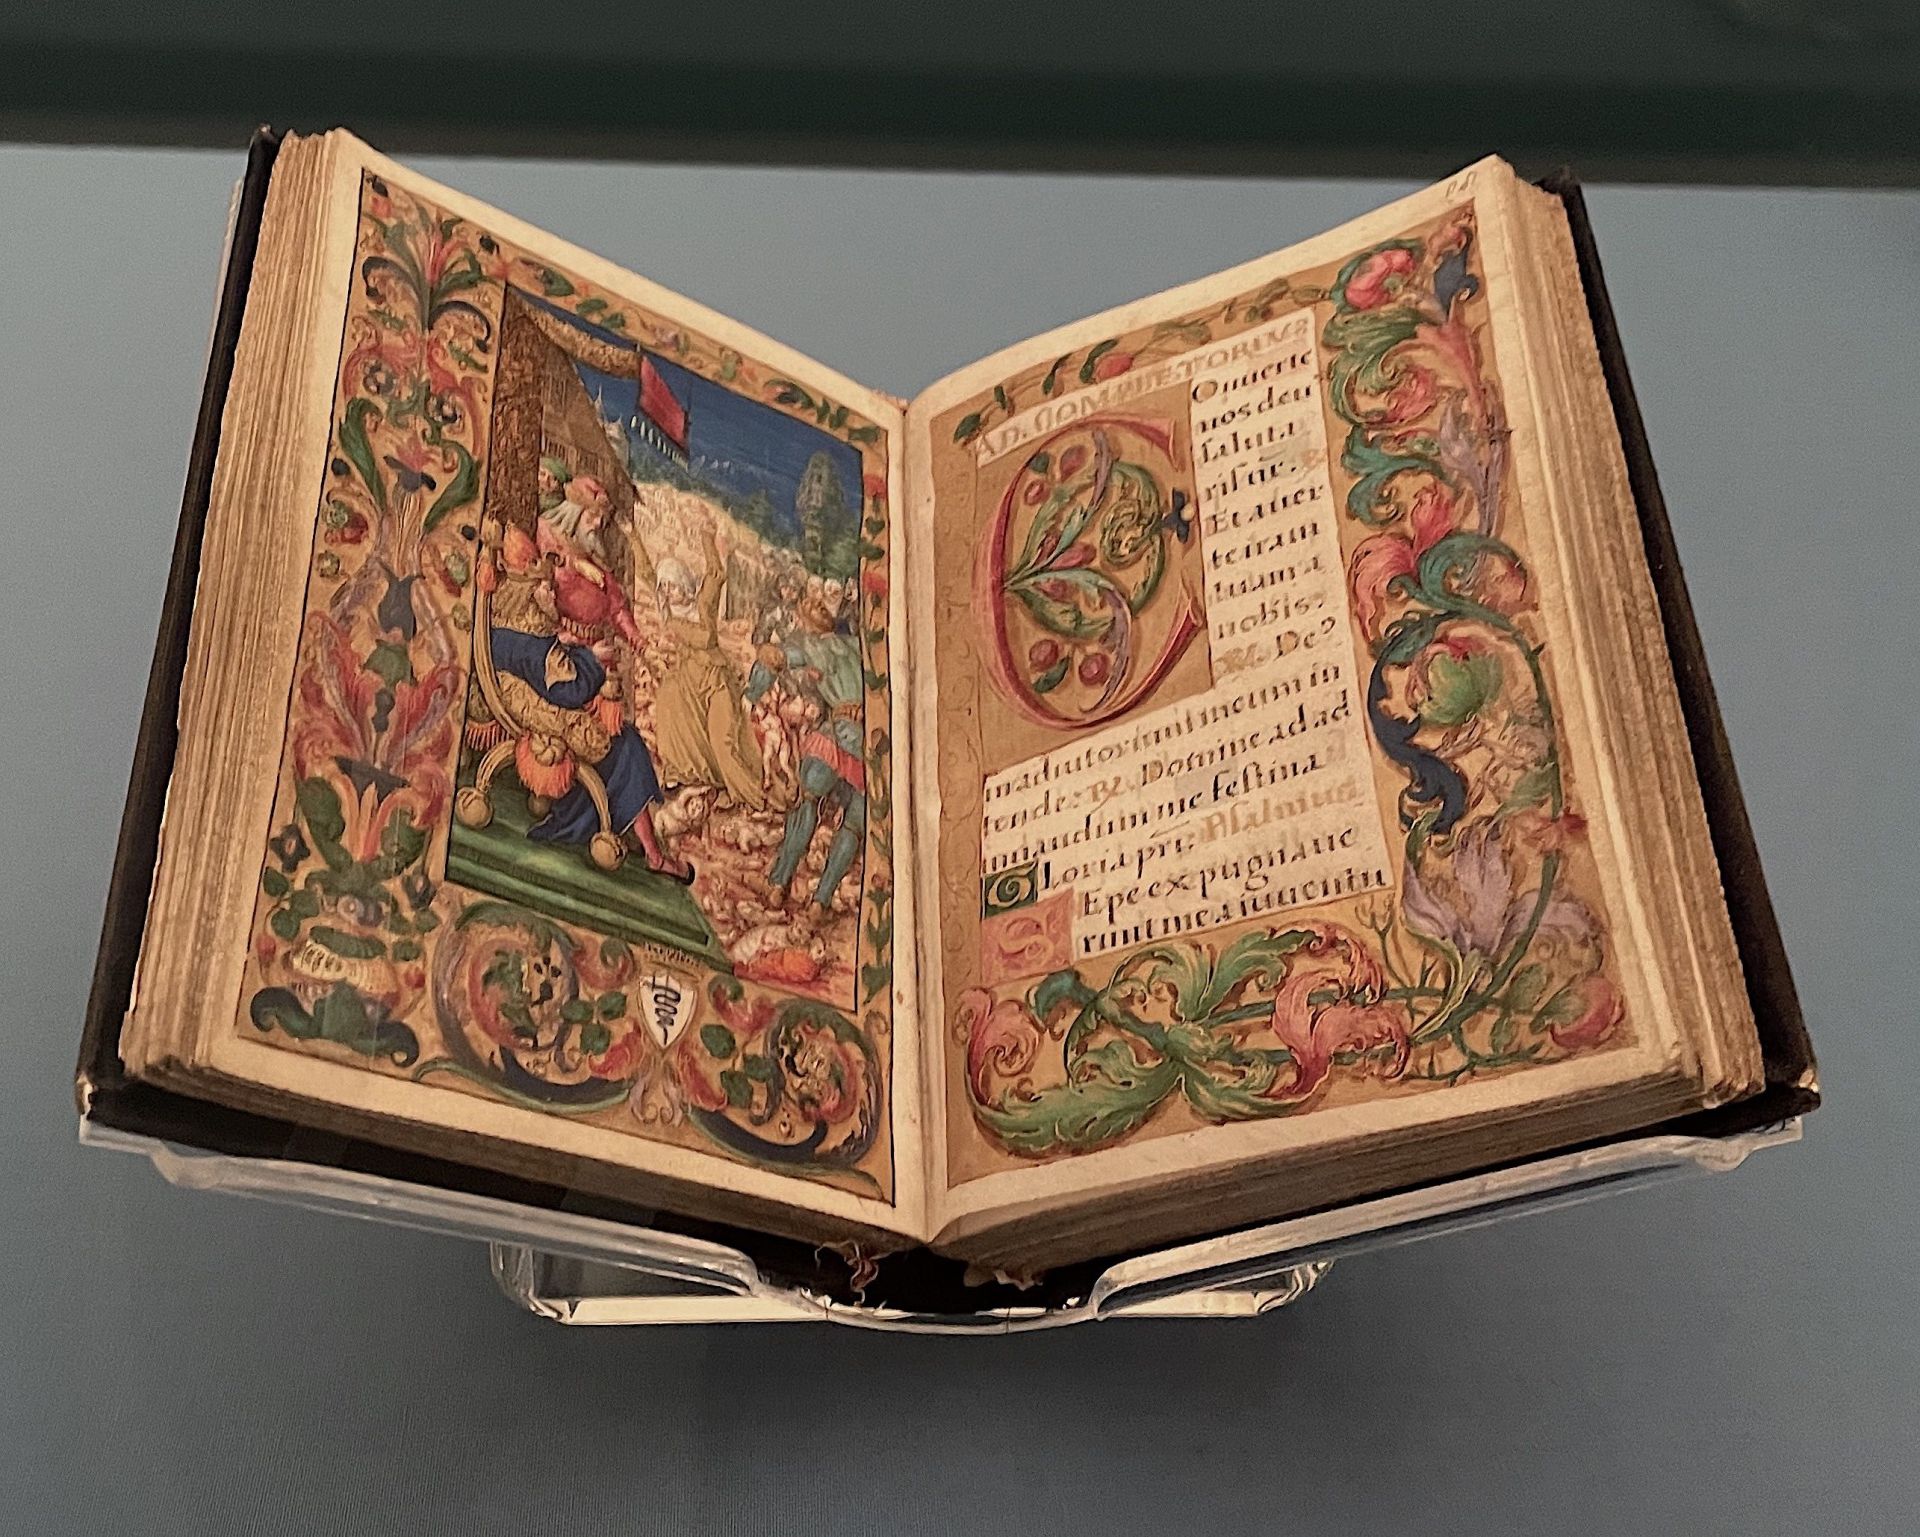 AD. COMPLETORIUM
Conuerte
nos deu
saluta
ris nr̃.
Et auer
te iram
tuam a
nobis?
De?
in adiutorium meum in
tende: R. Domine ad ad
iuuandum me festina
Gloria pr̃i: Psalmus
Sepe expugnaue
runt me a iuuentu